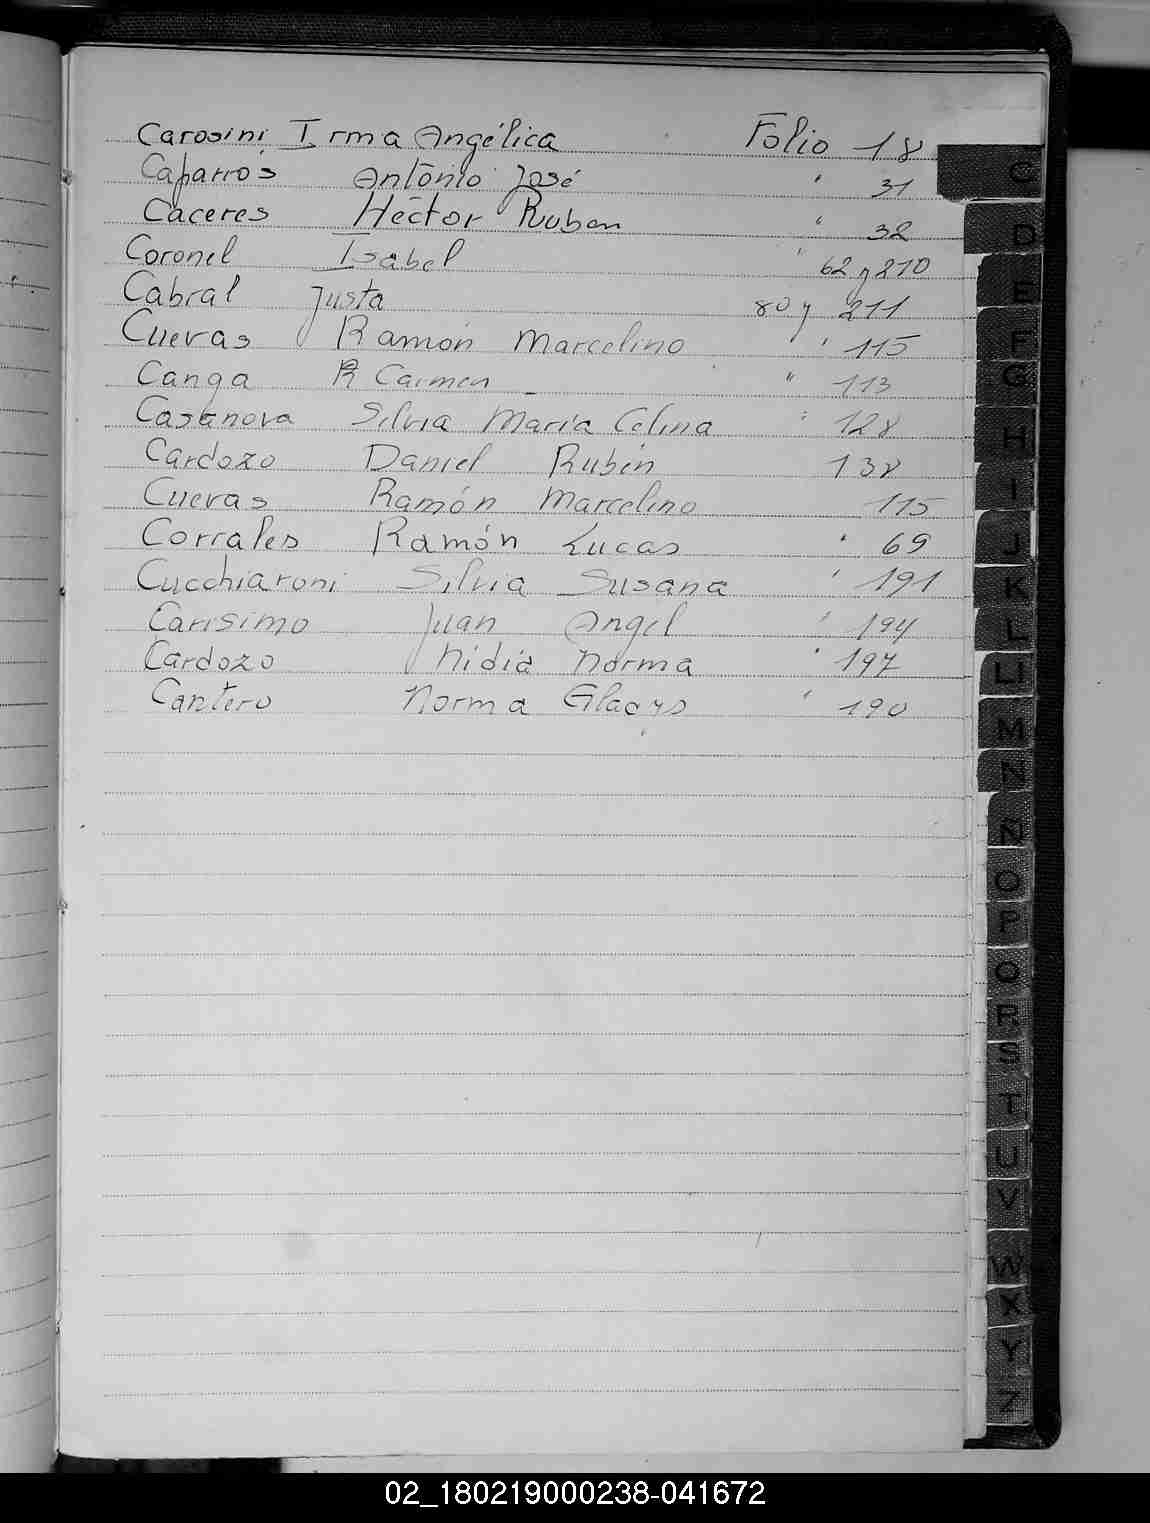 Carosini Irma Angélica Folio 18
Caparrós Antonio José " 31
Caceres Héctor Ruben " 32
Coronel Isabel " 62 y 210
Cabral Justa 80 y 211
Cuevas Ramón Marcelino " 115
Canga R Carmen " 113
Casanova Silvia María Celina " 128
Cardozo Daniel Rubén 138
Cuevas Ramón Marcelino 115
Corrales Ramón Lucas " 69
Cucchiaroni Silvia Susana " 191
Carisimo Juan Angel " 194
Cardozo Nidia Norma " 197
Cantero Norma Gladys " 190
C
D
E
F
G
H
I
J
K
L
Ll
M
N
Ñ
O
P
Q
R
S
T
U
V
W
X
Y
Z
02_180219000238-041672